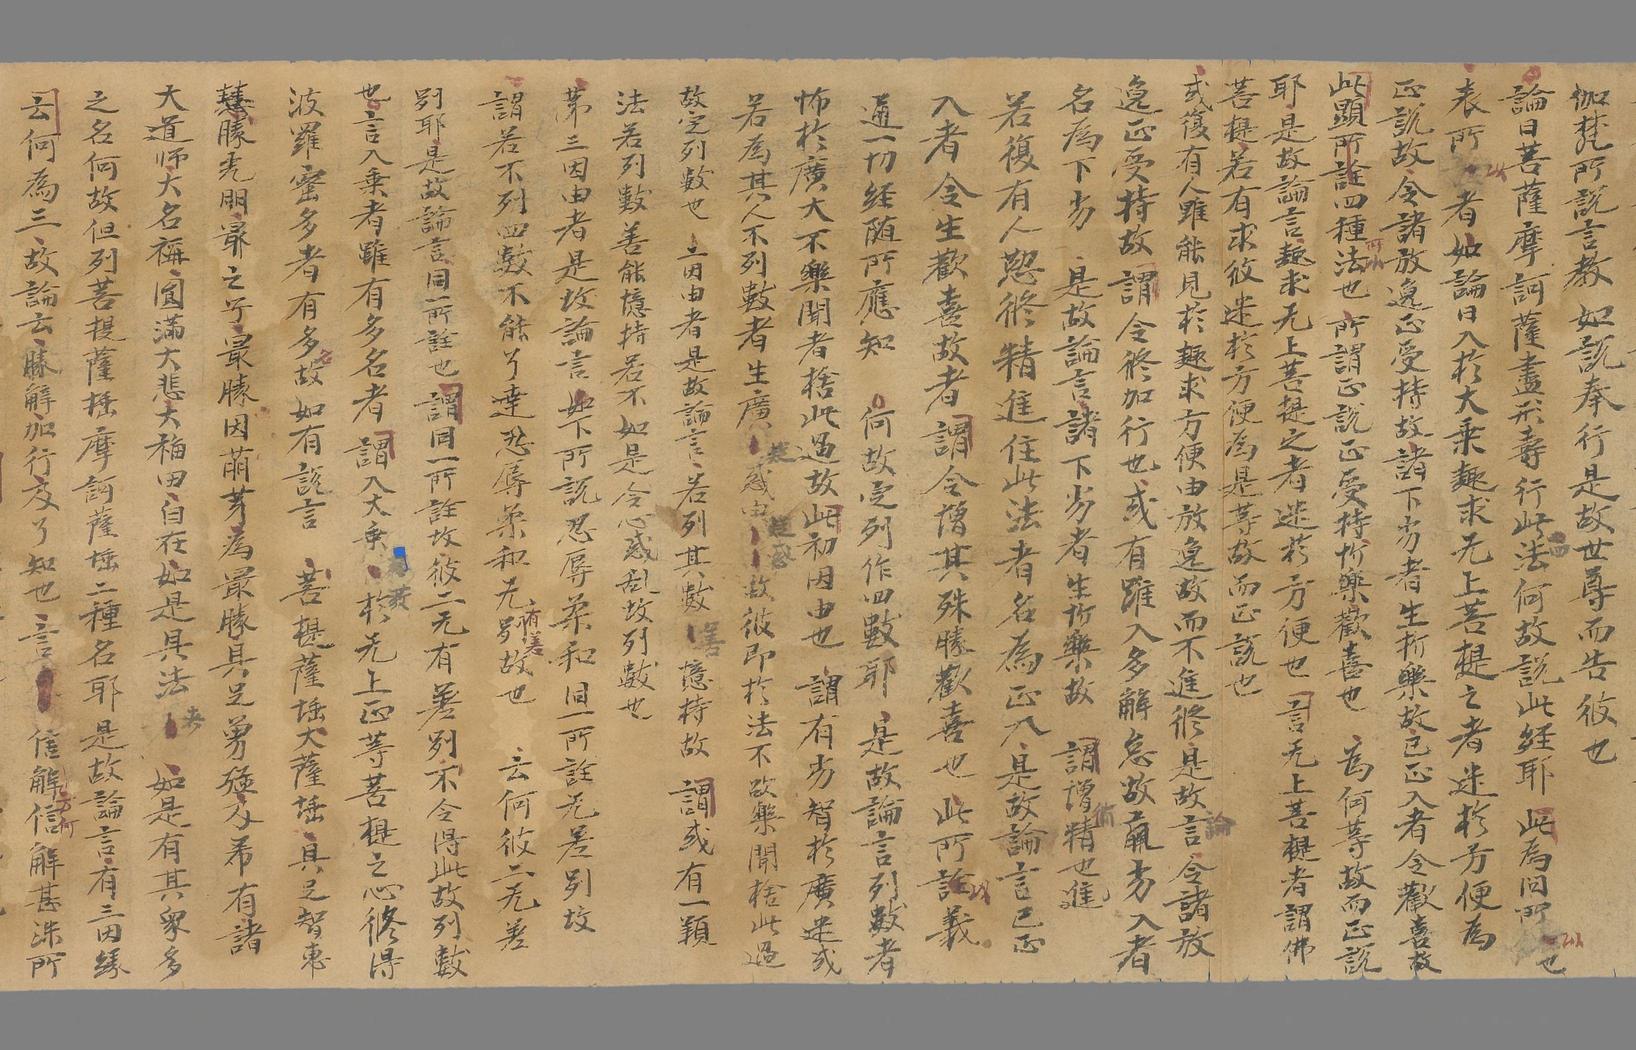 伽梵所說言教如說奉行是故世尊而告彼也
論曰菩薩摩訶薩盡形壽行此法何故說此經耶 此為問所以也
表所以者如論曰入於大乘趣求无上菩提之者迷於方便為
正說故令諸放逸正受持故諸下劣者生忻樂故已正入者令歡喜故
此顯所詮四種法也所謂正說正受持忻樂歡喜也 為何等故而正說
耶是故論言趣求无上菩提之者迷於方便也 言无上菩提者謂佛
菩提若有求彼迷於方便為是等故而正說也
或復有人雖能見於趣求方便由放逸故而不進修是故論言令諸放
逸正受持故 謂令修加行也 或有雖入多解怠故羸劣入者
名為下劣 是故論言諸下劣者生忻樂故 謂增精進也
若復有人懃修精進住此法者名為正入是故論言已正
入者令生歡喜故者 謂令增其殊勝歡喜也 此所詮義
通一切經随所應知 何故定列作四數耶 是故論言列數者
怖於廣大不樂聞者捨此過故此初因由也 謂有劣智於廣迷或
若為其人不列數者生廣迷惑故彼即於法不欲樂聞捨此過
故定列數也 二因由者是故論言若列其數善憶持故 謂或有一類
法若列數善能憶持若不如是令心惑乱故列數也
第三因由者是故論言如下所說忍辱柔和同一所詮无差別故
謂若不列四數不能了達忍辱柔和无有差別故也 云何彼二无差
別耶是故論言同一所詮也 謂同一所詮故彼二无有差別不令得此故列數
也言入乘者雖有多名者 謂入大乘於无上正等菩提之心修得
波羅蜜多者有多名故如有說言 菩提薩埵大薩埵具足智恵
慧勝秀朋最之子最勝因萠芽為最勝具足勇殟及希有諸
大道师大名稱圓滿大悲大福田自在如是具法 如是有其衆多
之名何故但列菩提薩埵摩訶薩埵二種名耶是故論言有三因緣
云何為三故論云勝解加行及了知也言信解信解甚深所